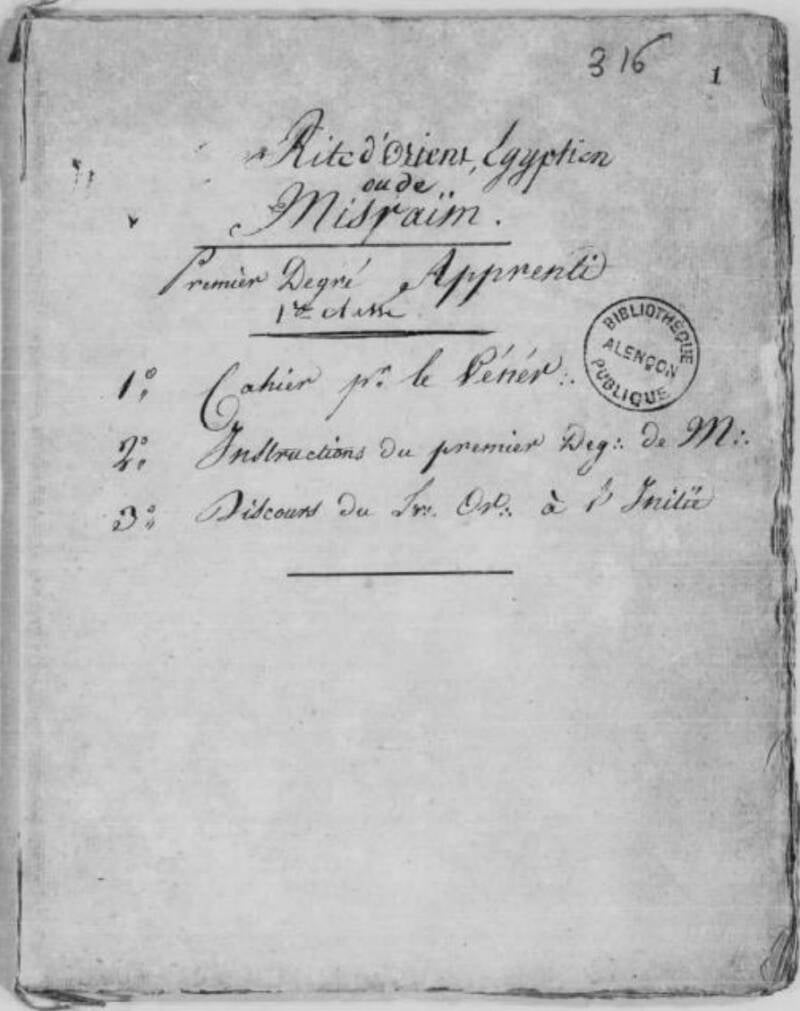 316
1
Rite d'Orient, Egyptien
ou de
Misraïm.
Premier Degré Apprenti
1re classe
BIBLIOTHÈQUE
ALENÇON
PUBLIQUE
1° Cahier pr. le Vénér∴
2° Instructions du premier Deg∴ de M∴
3° Discours du Or∴ à l'Initié